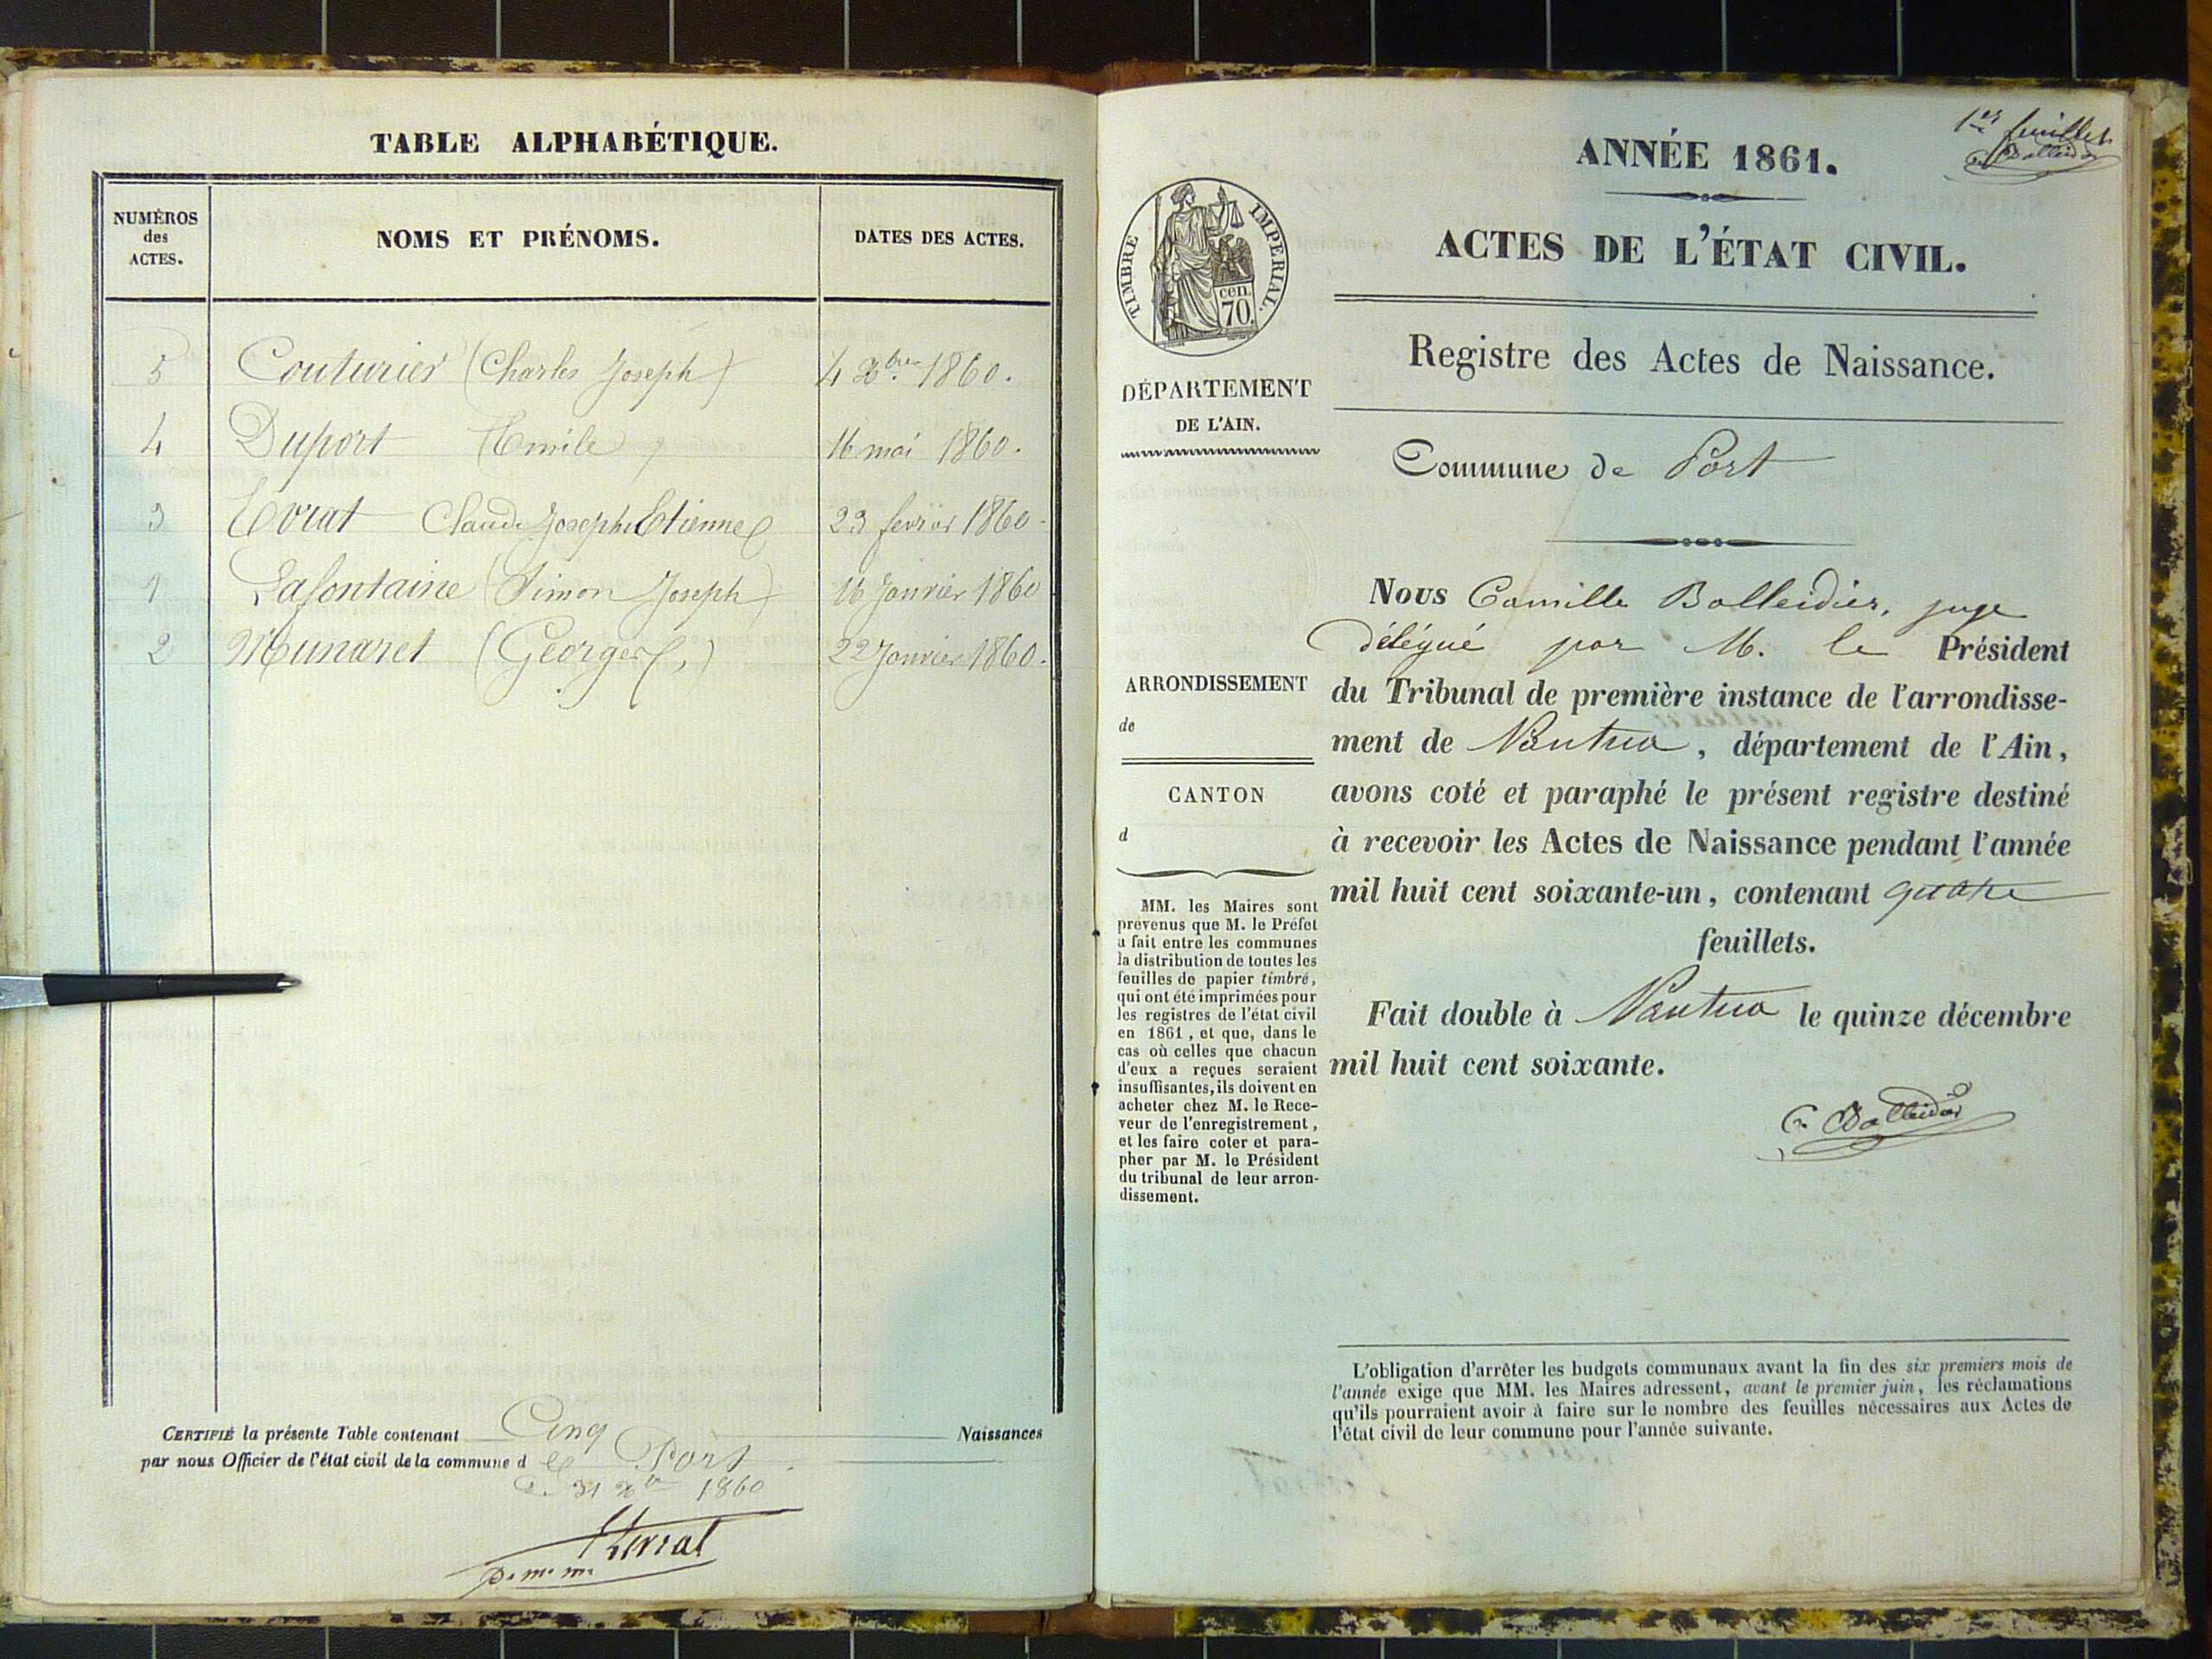 TABLE ALPHABÉTIQUE.
NUMÉROS
des
ACTES.
NOMS ET PRÉNOMS.
DATES DES ACTES.
5 Couturier (Charles Joseph) 4 Xbre 1860.
4 Duport (Emile) 16 mai 1860.
3 Evrat Claude Joseph Etienne 23 fevrier 1860
1 Lafontaine (Simon Joseph) 16 Janvier 1860
2 Munaret (Georges) 22 Janvier 1860.
CERTIFIÉ la présente Table contenant Cinq Naissances
par nous Officier de l'état civil de la commune d e Port
31 Xbre 1860
1er feuillet
C. Balleidier
ANNÉE 1861.
ACTES DE L'ÉTAT CIVIL.
TIMBRE IMPERIAL.
cen.
70.
Registre des Actes de Naissance.
DÉPARTEMENT
DE L'AIN.
Commune de Port
ARRONDISSEMENT
de
CANTON
d
MM. les Maires sont
prévenus que M. le Préfet
a fait entre les communes
la distribution de toutes les
feuilles de papier timbré,
qui ont été imprimées pour
les registres de l'état civil
en 1861, et que, dans le
cas où celles que chacun
d'eux a reçues seraient
insuffisantes, ils doivent en
acheter chez M. le Rece-
veur de l'enregistrement,
et les faire coter et para-
pher par M. le Président
du tribunal de leur arron-
dissement.
Nous Camille Balleidier, juge
délégué par M. le Président
du Tribunal de première instance de l'arrondisse-
ment de Nantua, département de l'Ain,
avons coté et paraphé le présent registre destiné
à recevoir les Actes de Naissance pendant l'année
mil huit cent soixante-un, contenant quatre
feuillets.
Fait double à Nantua le quinze décembre
mil huit cent soixante.
C. Balleidier
L'obligation d'arrêter les budgets communaux avant la fin des six premiers mois de
l'année exige que MM. les Maires adressent, avant le premier juin, les réclamations
qu'ils pourraient avoir à faire sur le nombre des feuilles nécessaires aux Actes de
l'état civil de leur commune pour l'année suivante.